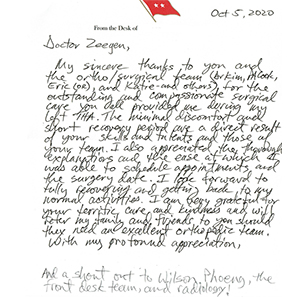 From the Desk of
Oct 5, 2020
Doctor Zeegen,
My sincere thanks to you and
the ortho/surgical team (Dr Kim,
Eric (OR), and Katre and others), for the
outstanding and compassionate surgical
care you all provided me during my
left THA. The minimal discomfort and
short recovery period are a direct result
of your skills and talents and those of
your team. I also appreciated the thorough
explanations and the ease at which I
was able to schedule appointments, and
the surgery date. I look forward to
fully recovering and getting back to my
normal activities. I am very grateful for
your terrific care and kindness and will
refer my family and friends to you should
they need an excellent orthopedic team.
With my profound appreciation,
And a shout out to Wilson, Phoeng, the
front desk team, and radiology!